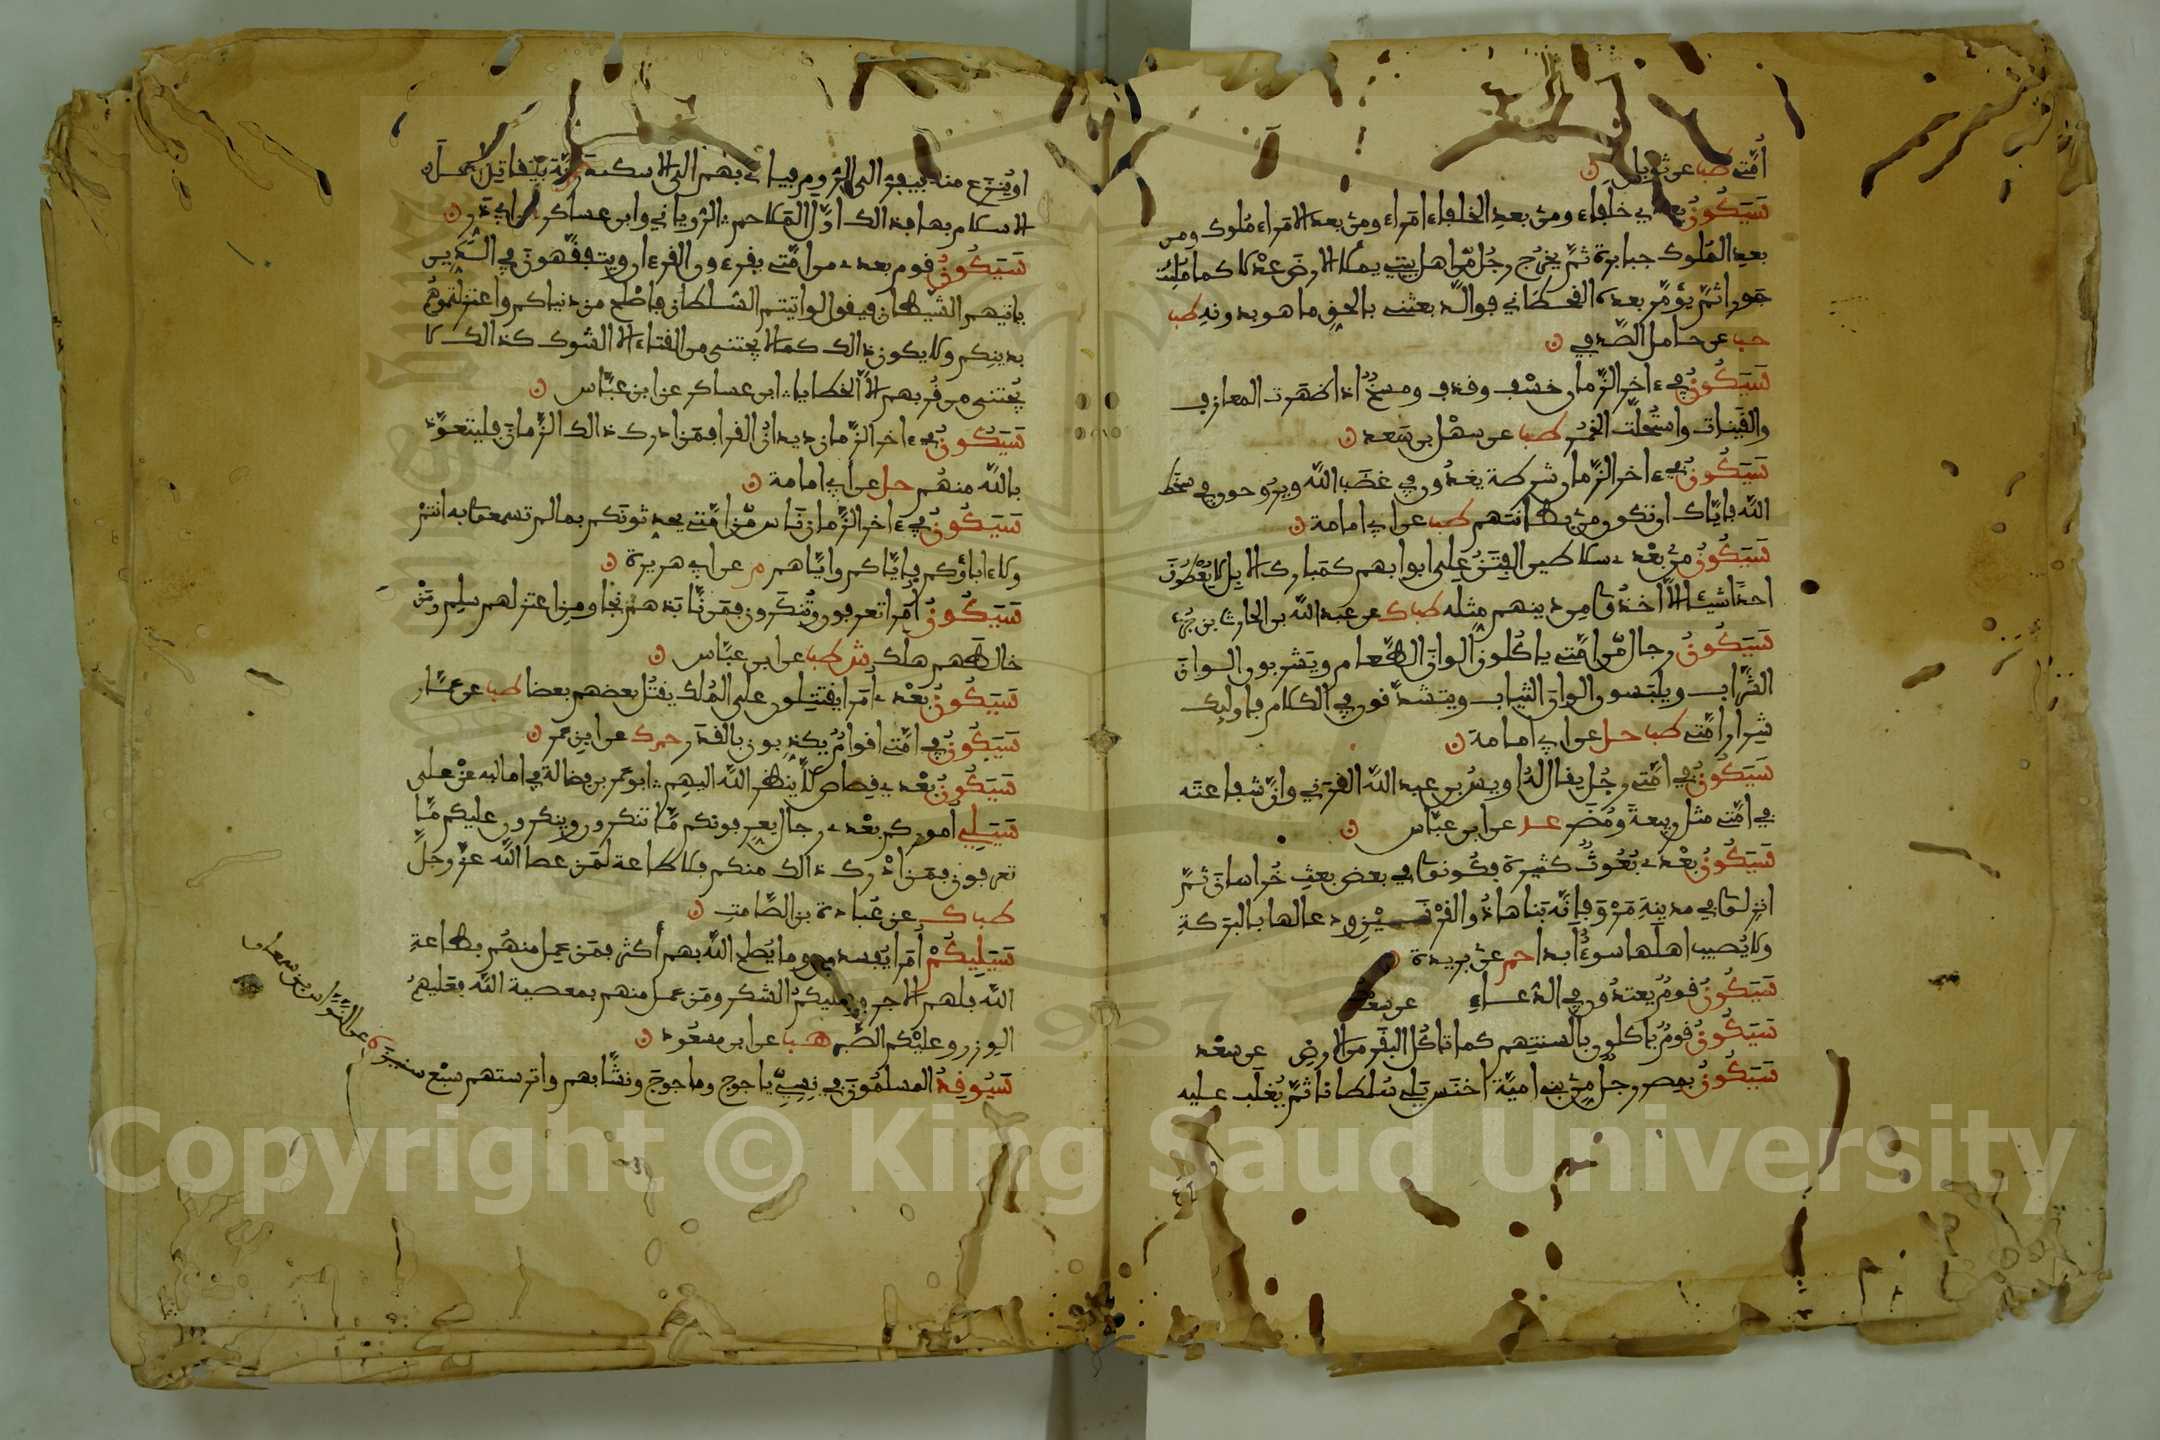 أمتي طب عن ثوبان
سَيَكُونُ بعدي خلفاء ومن بعد الخلفاء امراء ومن بعد الامراء ملوك ومن
بعد الملوك جبابرة ثم يخرج رجل من اهل بيتي يملا الارض عدلا كما ملئت
جورا ثم يؤمر بعده القحطاني فوالذ بعثني بالحق ما هو بدونه طب
عن حامل الصدفي
سَيَكُونُ في ءاخر الزمان خسف وقذف ومسخ اذا ظهرت المعازف
والقينات واستحلت الخمر طب عن سهل بن سعد
سَيَكُونُ في ءاخر الزمان شرطة يغدون في غضب الله ويروحون في سخط
الله فاياك ان تكون من بطانتهم طب عن ابي امامة
سَيَكُونُ من بعدي سلاطين الفتن على ابوابهم كمبارك الابل لا يعطون
احدا شيئا الا اخذوا من دينهم مثله طب ك عن عبد الله بن الحارث بن جزء
سَيَكُونُ رجال من امتي ياكلون الوان الطعام ويشربون الوان
الشراب ويلبسون الوان الثياب ويتشدقون في الكلام فاولئك
شرار امتي طب حل عن ابي امامة
سَيَكُونُ في امتي رجل يقال له اويس بن عبد الله القرني وان شفاعته
في امتي مثل ربيعة ومضر عد عن ابن عباس
سَيَكُونُ بعدي بعوث كثيرة فكونوا في بعض بعث خراسان ثم
انزلوا في مدينة مرو فانه بناها ذو القرنين ودعا لها بالبركة
ولا يصيب اهلها سوء أبدا حم عن بريدة
سَيَكُونُ قوم يعتدون في الدعاء عن سعد
سَيَكُونُ قوم ياكلون بالسنتهم كما تاكل البقر من الارض عن سعد
سَيَكُونُ بمصر رجل من بني امية اخنس يلي سلطانا ثم يغلب عليه
او ينزع منه فيفر الى الروم فياتي بهم الى الاسكندرية فيقاتل اهل
الاسلام بها فذالك اول الملاحم الروياني وابن عساكر عن ابي ذر
سَيَكُونُ قوم بعدي من امتي يقرءون القرءان ويتفقهون في الدين
ياتيهم الشيطان فيقول لو اتيتم السلطان فاصلح من دنياكم واعتزلتموهم
بدينكم ولا يكون ذالك كما لا يجتنى من القتاد الا الشوك كذالك لا
يجتنى من قربهم الا الخطايا ابن عساكر عن ابن عباس
سَيَكُونُ في ءاخر الزمان ديدان القرا فمن ادرك ذالك الزمان فليتعوذ
بالله منهم حل عن ابي امامة
سَيَكُونُ في ءاخر الزمان ناس من امتي يحدثونكم بما لم تسمعوا به انتم
ولا ءاباؤكم فاياكم واياهم م عن ابي هريرة
سَيَكُونُ أمرا تعرفون وتنكرون فمن نابذهم نجا ومن اعتزلهم سلم ومن
خالطهم هلك ش طب عن ابن عباس
سَيَكُونُ بعدي أمرا يقتتلون على الملك يقتل بعضهم بعضا طب عن عمار
سَيَكُونُ في امتي اقوام يكذبون بالقدر حم ك عن ابن عمر
سَيَكُونُ بعدي قصاص لا ينظر الله اليهم ابو عمر بن فضالة في اماليه عن علي
سَيَلِي أموركم بعدي رجال يعرفونكم ما تنكرون وينكرون عليكم ما
تعرفون فمن ادرك ذالك منكم فلا طاعة لمن عصا الله عز وجل
طب ك عن عبادة بن الصامت
سَيَلِيكُمْ أمرا يفسدون وما يصلح الله بهم أكثر فمن عمل منهم بطاعة
الله فلهم الاجر وعليكم الشكر ومن عمل منهم بمعصية الله فعليهم
الوزر وعليكم الصبر هب عن ابن مسعود
سَيُوقِدُ المسلمون في قسي ياجوج وماجوج ونشابهم واترستهم سبع
سنين ه عن النواس بن سمعان
Copyright © King Saud University
1957